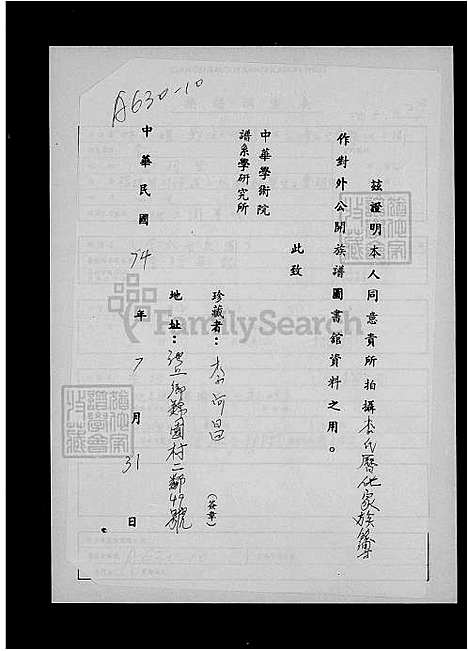 A630-10
茲證明本人同意貴所拍攝李氏歷代家族簿
作對外公開族譜圖書館資料之用。
此致
中華學術院
譜系學研究所
珍藏者：李河昌
(簽章)
地址：鄉館園村二鄰49號
中華民國74年7月31日
FamilySearch
A630-10